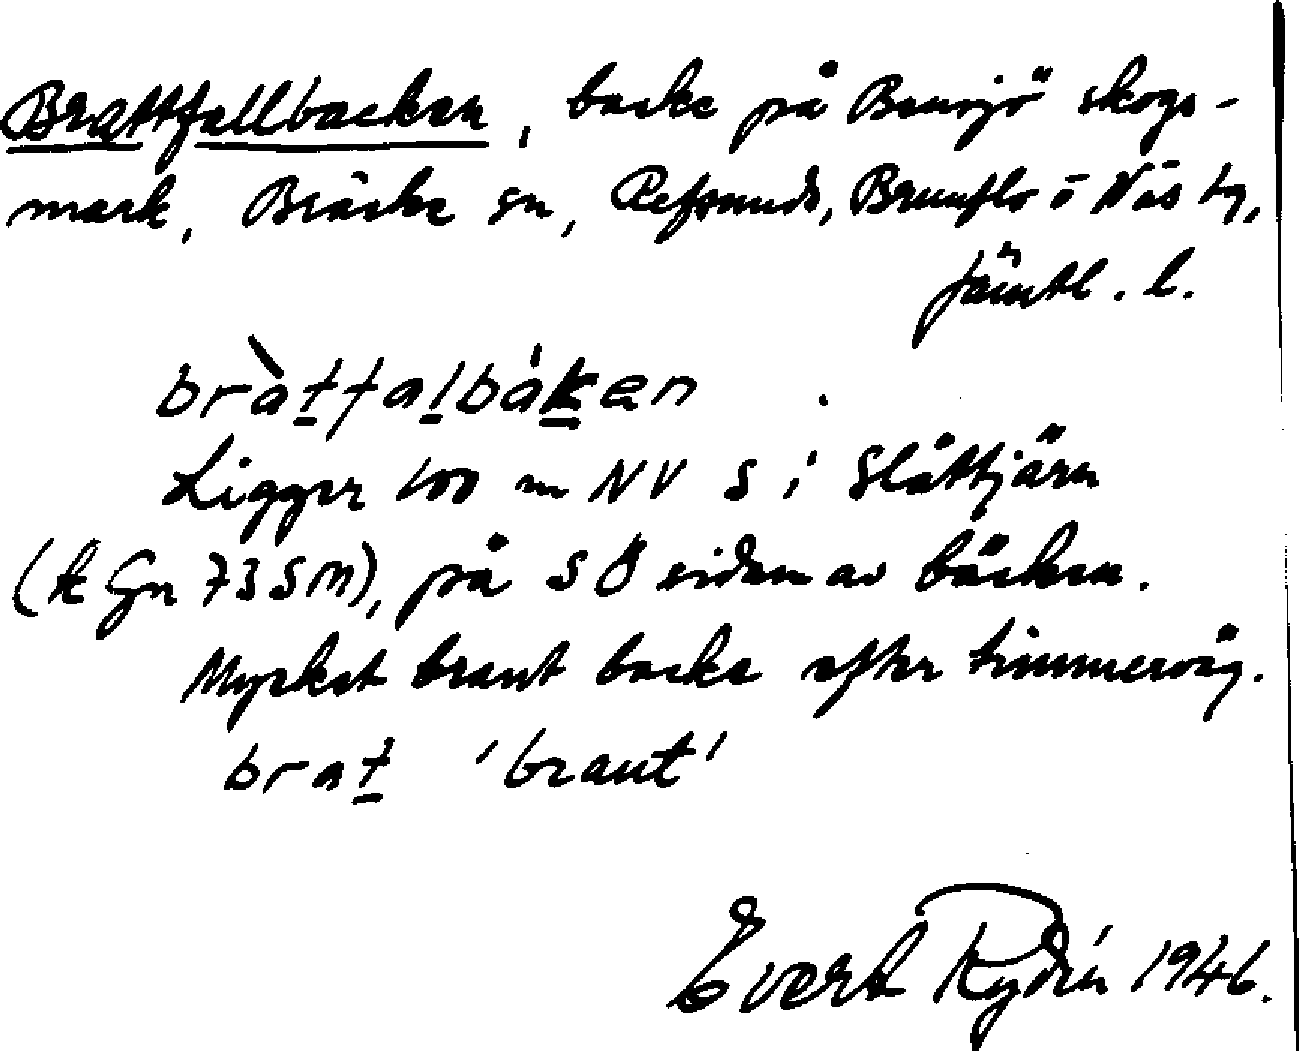 Brattfallbacken, backe på Bensjö skogs-
mark, Bräcke sn, Refsunds, Brunflo o Näs tg,
Jämtl. l.
bràt̲fal̲bák̲en
Ligger 400 m NV S i Slåttjärn
(k Gn 735 M), på SÖ sidan av bäcken.
Mycket brant backe efter timmerväg.
brat̲ 'brant'
Evert Rydén 1946.